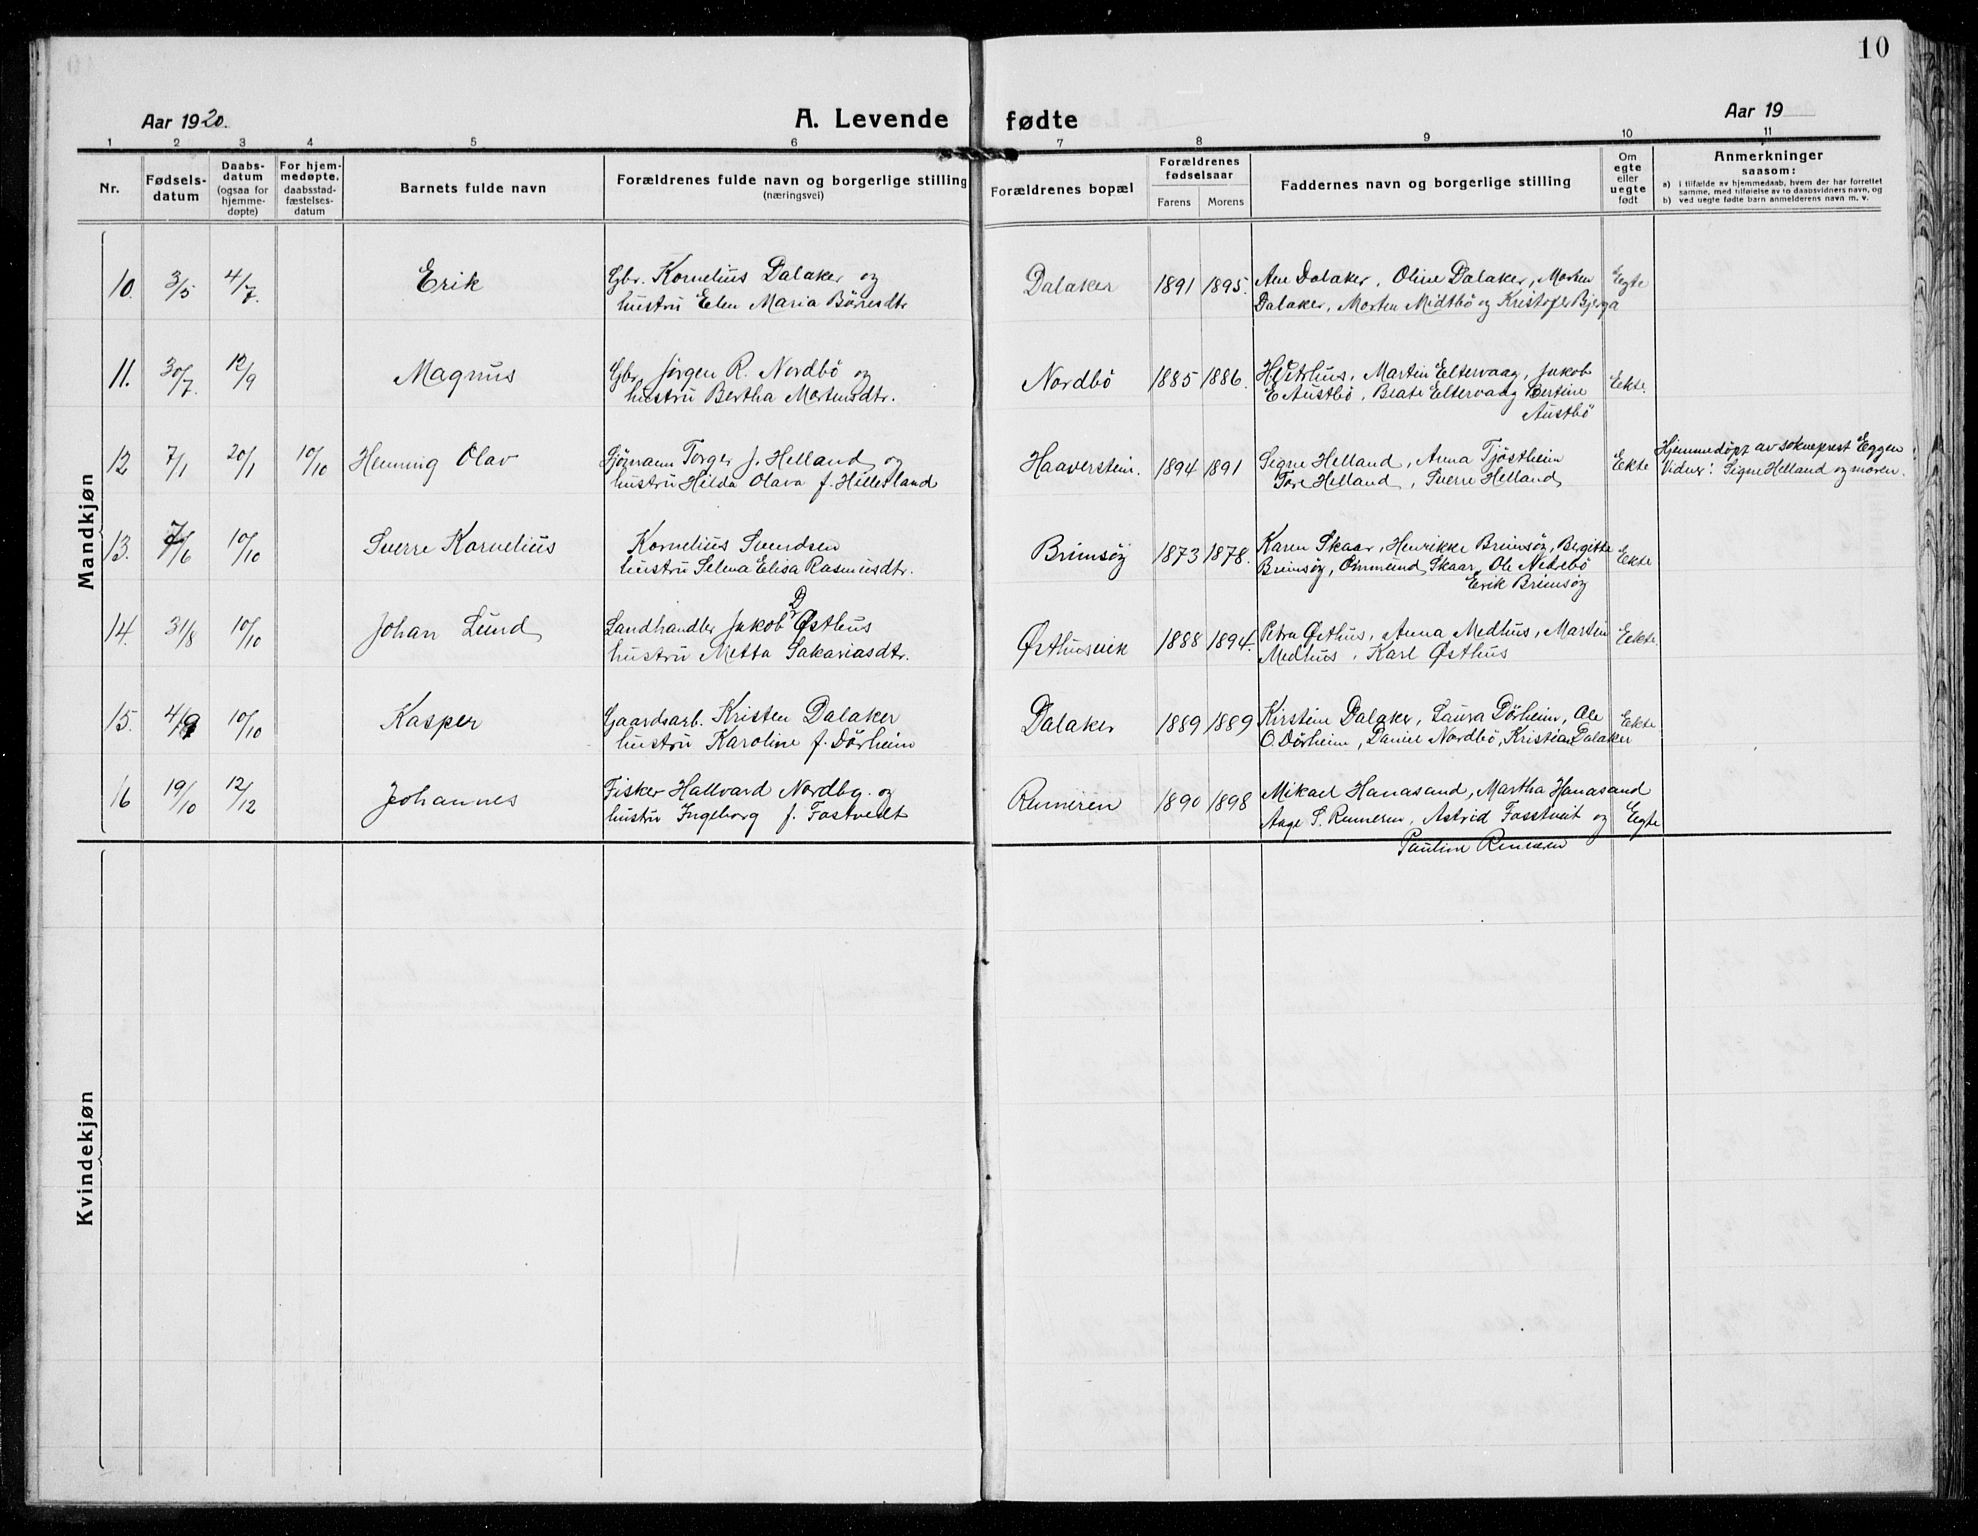 10
Aar 1920.
A. Levende fødte
Aar 19
1 2 3 4 5 6 7 8 9 10 11
Nr.
Fødsels-
datum
Daabs-
datum
(ogsaa for
hjemme-
døpte)
For hjem-
medøpte,
daabsstad-
fæstelses-
datum
Barnets fulde navn
Forældrenes fulde navn og borgerlige stilling
(næringsvei)
Forældrenes bopæl
Forældrenes
fødselsaar
Farens Morens
Faddernes navn og borgerlige stilling
Om
egte
eller
uegte
født
Anmerkninger
saasom:
a) i tilfælde av hjemmedaab, hvem der har forrettet
samme, med tilføielse av to daabsvidners navn, og
b) ved uegte fødte barn anmelderens navn m. v.
Mandkjøn
10. 3/5 4/7. Erik Gbr. Kornelius Dalaker og Dalaker 1891 1895. Ane Dalaker, Oline Dalaker, Morten Egte
hustru Elen Maria Børresdtr Dalaker, Morten Midtbö og Kristofer Bjerga
11. 30/7. 12/9 Magnus Gbr. Jørgen R. Nordbö og Nordbö 1885 1886. Martin Eltervaag, Jakob Ekte.
hustru Bertha Mortensdtr. E Austbö, Beate Eltervaag Bertine
Austbö
12 7/1 20/1 10/10 Henning Olav Sjømann Torger J. Helland og Haaverstein. 1894 1891 Signe Helland, Anna Tjøstheim Ekte Hjemmedöpt av sokneprest Eggen
hustru Hilda Olava f. Hillesland Tore Helland, Sverre Helland Vidner: Signe Helland og moren.
13. 7/6 10/10 Sverre Kornelius Kornelius Svendsen Brimsöy 1873 1878. Karen Skaar, Henrikke Brimsöy, Bergitte Ekte
hustru Selma Elisa Rasmusdtr. Brimsöy, Ommund Skaar, Ole Nedrebö
Erik Brimsöy
14. 31/8 10/10 Johan Lund Landhandler Jakob D Østhus Østhusvik 1888 1894. Petra Østhus, Anna Medhus, Martin Ekte.
hustru Metta Sakariasdtr. Medhus, Karl Østhus
15. 4/9 10/10 Kasper Gaardsarb. Kristen Dalaker Dalaker 1889 1889 Kirstine Dalaker, Laura Dörheim, Ole Ekte
hustru Karoline f. Dörheim O. Dörheim, Daniel Nordbö, Kristian Dalaker
16 19/10 12/12 Johannes Fisker Hallvard Nordbø. og Rennæren 1890 1898 Mikael Hanasand, Martha Hanasand
hustru Ingeborg f. Fostvedt Aage S. Renneren, Astrid Fosstveit og Egte
Pauline Rennæren
Kvindekjøn